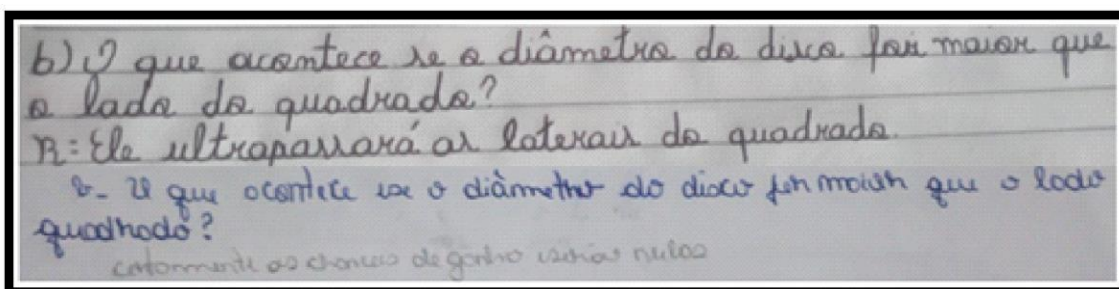 b) O que acontece se o diâmetro do disco for maior que
o lado do quadrado?
R: Ele ultrapassará as laterais do quadrado.
b- O que acontece se o diâmetro do disco for maior que o lado
quadrado?
certamente as chances de ganho serias nulas